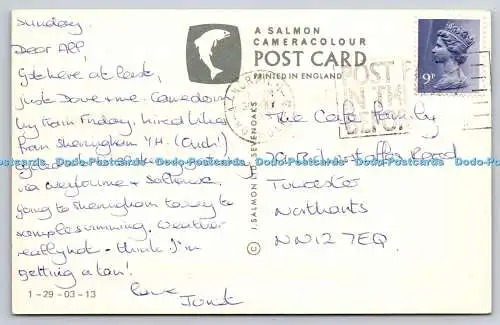 Sunday.
Dear All!
Got here at last,
just Dave & me. Came down
by train Friday, hired bikes
from Sheringham Y.H. (Ouch!)
via Weybourne & Salthouse,
going to Sheringham today to
sample swimming. Weather
really hot - think I'm
getting a tan!
love
1-29-03-13
A SALMON
CAMERACOLOUR
POST CARD
PRINTED IN ENGLAND
© J. SALMON LTD SEVENOAKS
9P
POST
IN TH
The Cafe Family
Road
Towcester
Northants
NN12 7EQ.
Dodo-Postcards Dodo-Postcards Dodo-Postcards Dodo-Postcards Dodo-Postcards